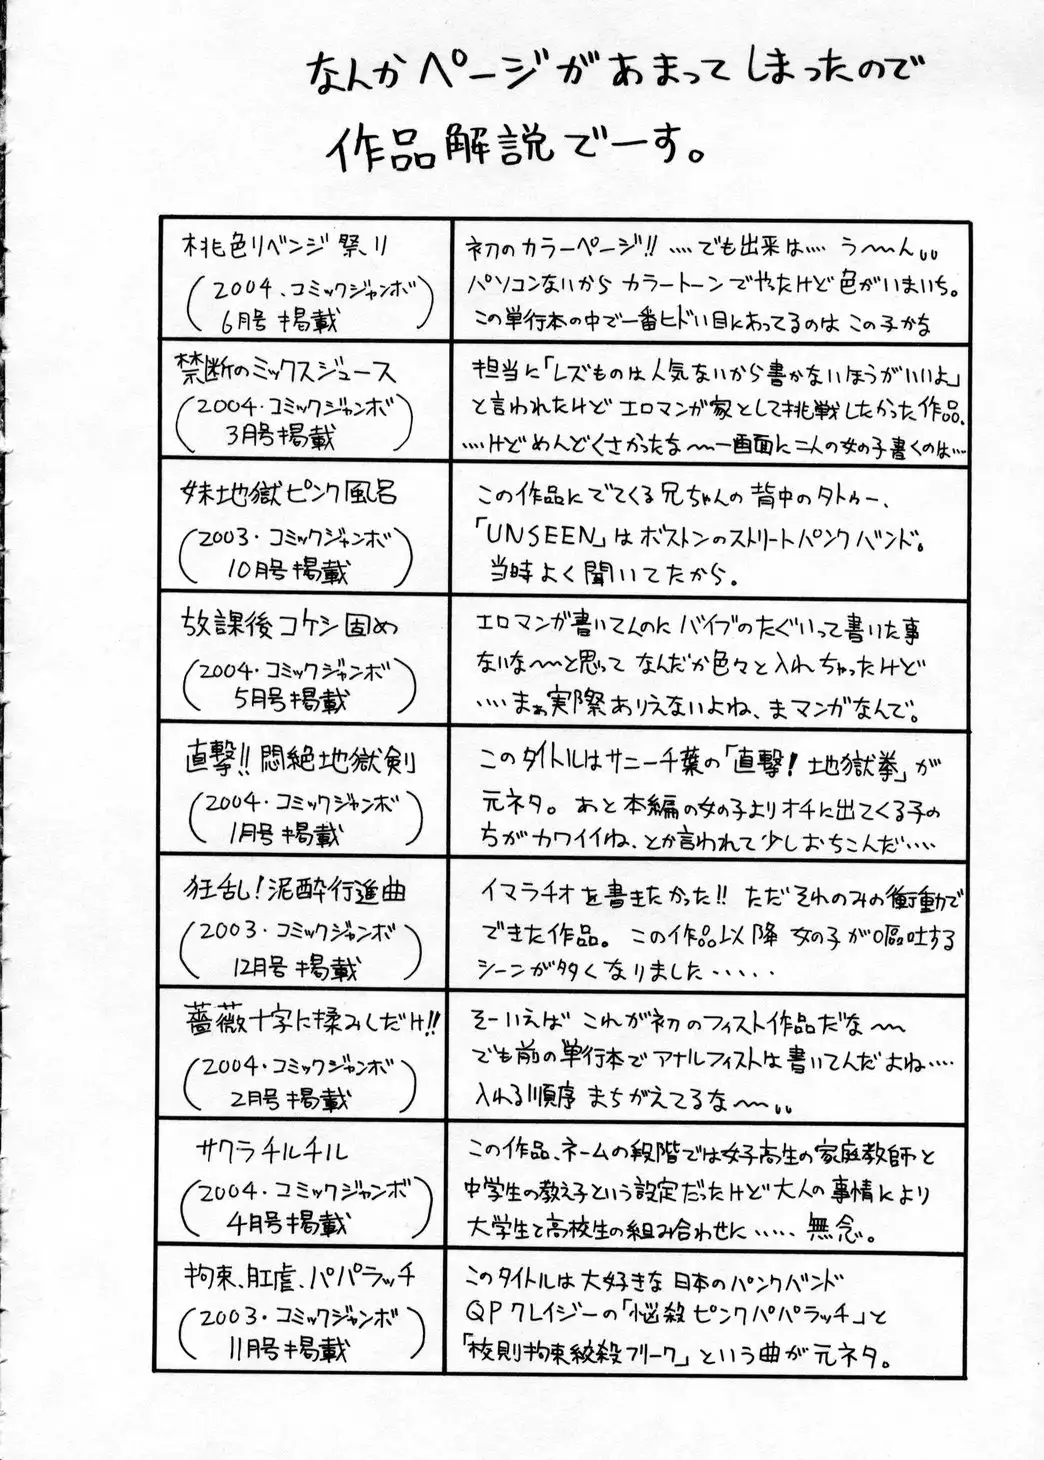 なんかページがあまってしまったので
作品解説でーす。
桃色リベンジ祭り
(2004.コミックジャンボ
6月号掲載)
初のカラーページ!! ‥‥でも出来は‥‥ う〜ん
パソコンないから カラートーンでやったけど色がいまいち。
この単行本の中で一番ヒドい目にあってるのは この子かな
禁断のミックスジュース
(2004・コミックジャンボ
3月号掲載)
担当に「レズものは人気ないから書かないほうがいいよ」
と言われたけど エロマンガ家として挑戦したかった作品.
‥‥けどめんどくさかったな〜一画面に二人の女の子書くのは‥‥
妹地獄ピンク風呂
(2003・コミックジャンボ
10月号掲載)
この作品にでてくる兄ちゃんの背中のタトゥー、
「UNSEEN」はボストンのストリートパンクバンド。
当時よく聞いてたから.
放課後コケシ固め
(2004・コミックジャンボ
5月号掲載)
エロマンガ書いてんのに バイブのたぐいって書いた事
ないな〜と思って なんだか色々と入れちゃったけど
‥‥まぁ実際ありえないよね、まマンガなんで。
直撃!!悶絶地獄剣
(2004・コミックジャンボ
1月号掲載)
このタイトルはサニー千葉の「直撃!地獄拳」が
元ネタ。あと本編の女の子よりオチに出てくる子の
ちがカワイイね、とか言われて少しおちこんだ‥‥
狂乱!泥酔行進曲
(2003・コミックジャンボ
12月号掲載)
イマラチオを書きたかった!! ただそれのみの衝動で
できた作品。この作品以降 女の子が嘔吐する
シーンが多くなりました‥‥‥
薔薇十字に揉みしだけ!!
(2004・コミックジャンボ
2月号掲載)
そーいえば これが初のフィスト作品だな〜
でも前の単行本でアナルフィストは書いてんだよね‥‥
入れる順序まちがえてるな〜
サクラチルチル
(2004・コミックジャンボ
4月号掲載)
この作品、ネームの段階では女子高生の家庭教師と
中学生の教え子という設定だったけど大人の事情により
大学生と高校生の組み合わせに‥‥‥ 無念。
拘束、肛虐、パパラッチ
(2003・コミックジャンボ
11月号掲載)
このタイトルは大好きな日本のパンクバンド
QPクレイジーの「悩殺ピンクパパラッチ」と
「校則拘束絞殺フリーク」という曲が元ネタ。